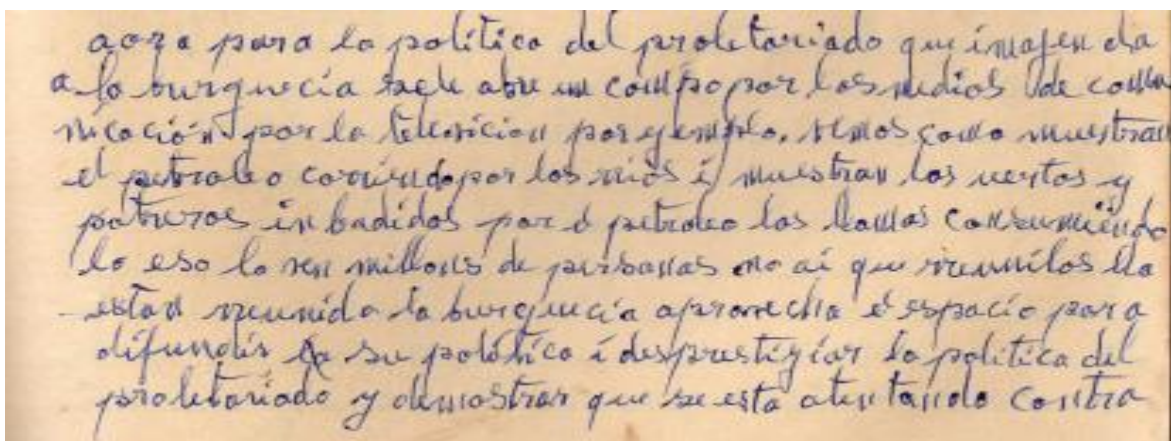 aora para la política del proletariado que imajen da
a la burguecía sele abre un campo por los medios de comu
nicación por la televicion por ejemplo. vemos como muestran
el petroleo corriendo por los rios i muestran los uertos y
potreros inbadidos por é petroleo las llamas consumiéndo
lo eso lo ven millones de personas no ai que reunilos lla
estan reunido la burguecía aprovecha é espacio para
difundir a su política i desprestigiar la política del
proletariado y demostrar que se esta atentando contra